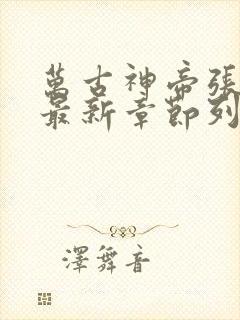 萬古神帝張
最新章節列
澤舞音